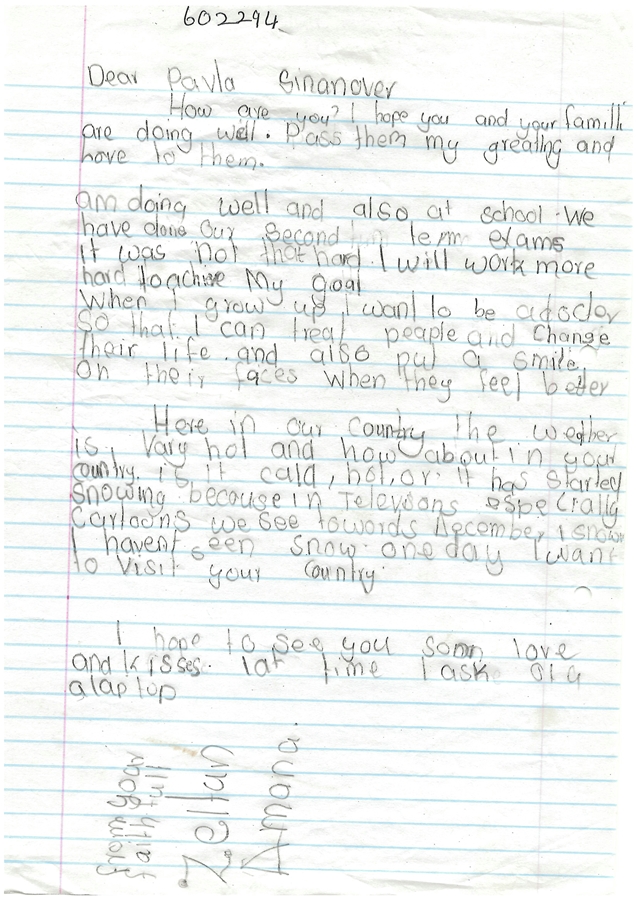 602294
Dear Pavla Sinanover
How are you? I hope you and your famili
are doing well. Pass them my greating and
hove to them.
am doing well and also at school. We
have done our second term exams
it was not that hard. I will work more
hard to achive My goal
When I grow up I want to be a docter
So that I can treat people and Change
their life. and also put a smile
on their faces when they feel better
Here in our country the wether
is vary hot and how about in your
country. is it cald, hot, or it has started
snowing because in Televsons especrally
Cartoons we see towords December, i snow
I havent seen snow. one day I want
to visit your country.
I hope to see you somn love
and kisses. lat time I ask of a
a laptop
from your
faithfull
Zeitun
Amana.